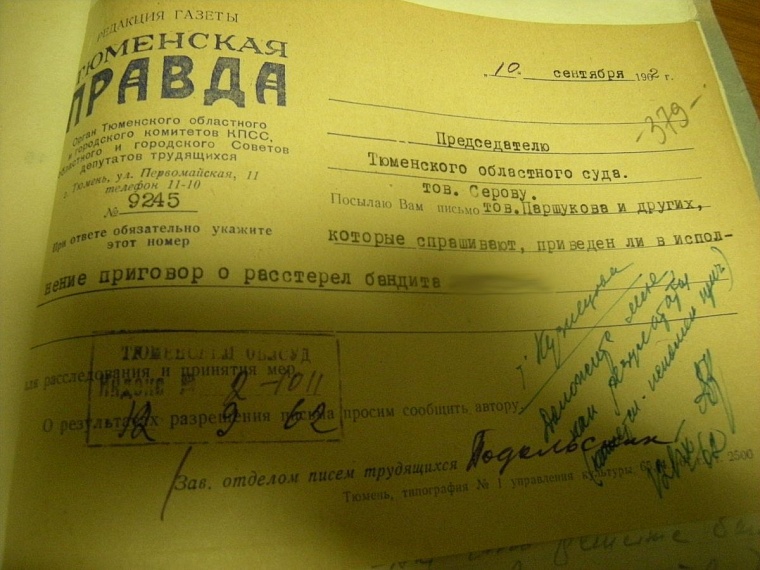 РЕДАКЦИЯ ГАЗЕТЫ
ТЮМЕНСКАЯ
ПРАВДА
Орган Тюменского областного
и городского комитетов КПСС,
областного и городского Советов
депутатов трудящихся
г. Тюмень, ул. Первомайская, 11
телефон 11-10
№ 9245
При ответе обязательно укажите
этот номер
„10“ сентября 1962 г.
-379-
Председателю
Тюменского областного суда.
тов. Серову.
Посылаю Вам письмо тов.Паршукова и других,
которые спрашивают, приведен ли в испол-
нение приговор о расстерел бандита
для расследования и принятия мер
О результатах разрешения письма просим сообщить автору
ТЮМЕНСКИЙ ОБЛСУД
2-1011
12 9 62
т. Кузнецова
Доложите мне
Зав. отделом писем трудящихся
Тюмень, типография № 1 управления культуры
2500